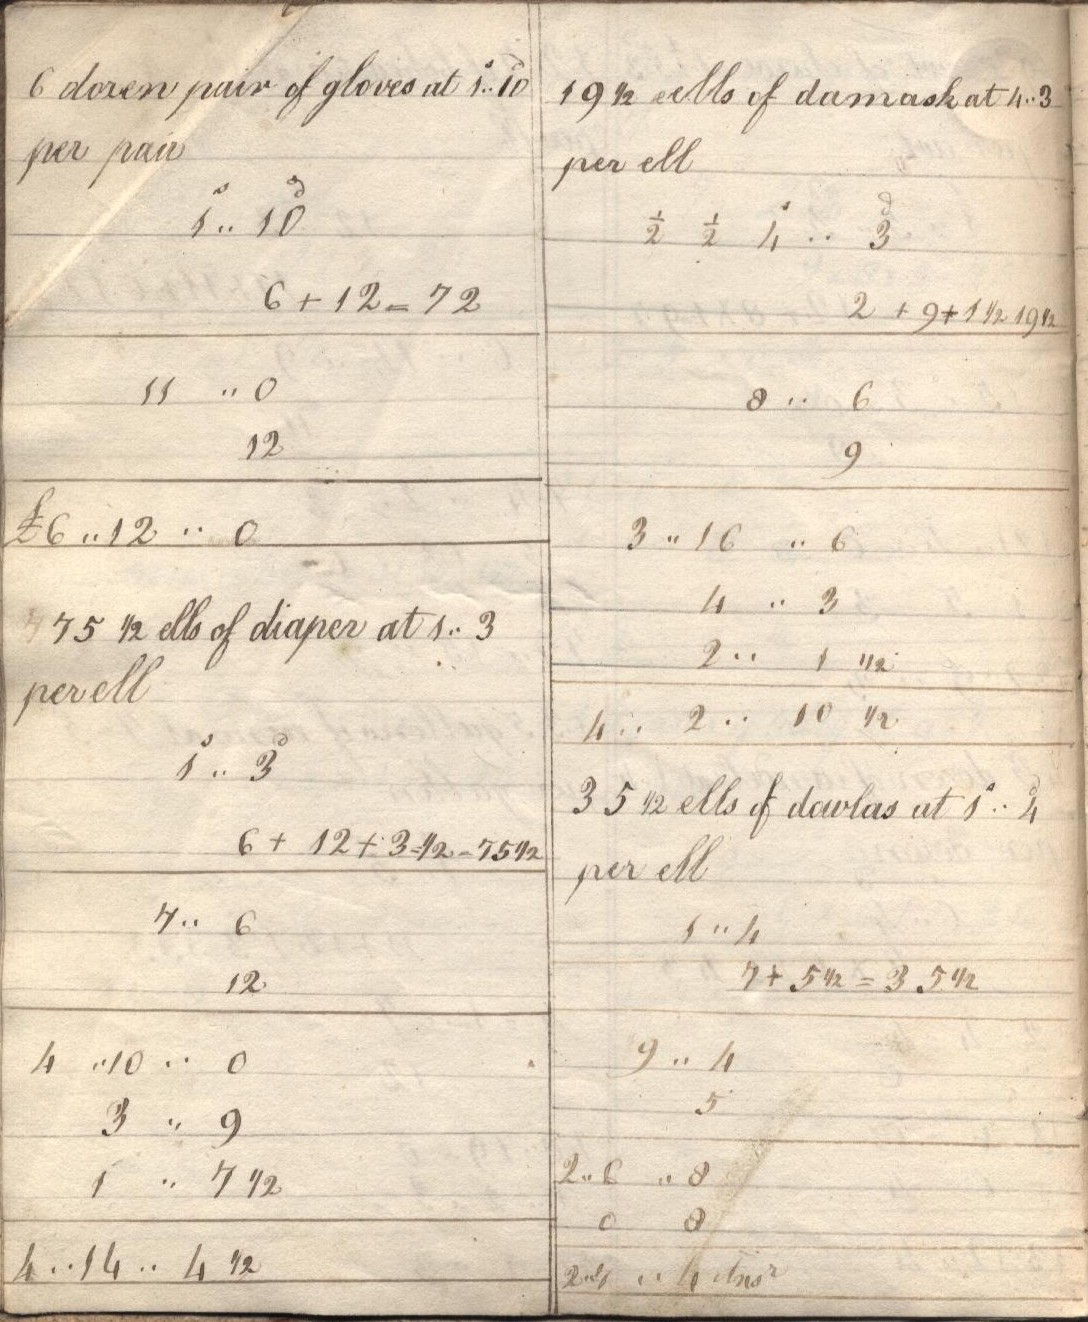 6 dozen pair of gloves at 1s..10d
per pair
1s.. 10d
6 + 12 = 72
11 .. 0
12
£6 .. 12 .. 0
75 1/2 ells of diaper at 1.. 3
per ell
1s.. 3d
6 + 12 + 3 = 1/2 - 75 1/2
7.. 6
12
4 .. 10 .. 0
3 .. 9
1 .. 7 1/2
4 .. 14 .. 4 1/2
19 1/2 ells of damask at 4..3
per ell
1/2 1/2 4s .. 3d
2 + 9 + 1 1/2 19 1/2
8 .. 6
9
3 .. 16 .. 6
4 .. 3
2 .. 1 1/2
4.. 2.. 10 1/2
35 1/2 ells of dowlas at 1s.. 4d
per ell
1 .. 4
7 + 5 1/2 = 35 1/2
9 .. 4
5
2.. 6 .. 8
0 8
.. 4 Ansr